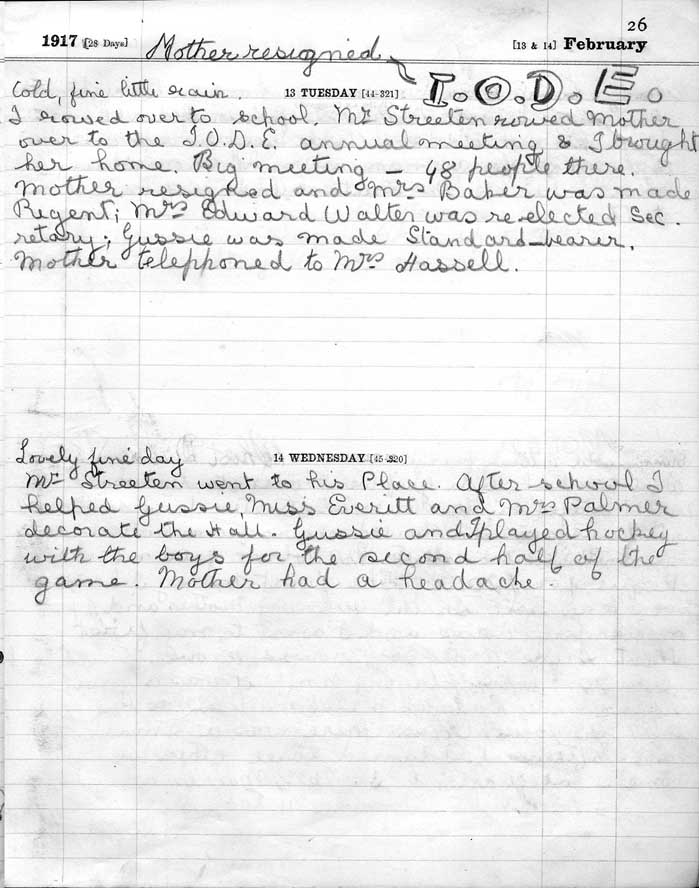 26
1917 [28 Days] Mother resigned [13 & 14] February
I.O.D.E.
Cold, fine little rain. 13 TUESDAY [44-321]
I rowed over to school. Mr Streeten rowed Mother
over to the I.O.D.E. annual meeting & I brought
her home. Big meeting – 48 people there.
Mother resigned and Mrs Baker was made
Regent; Mrs Edward Walter was re-elected Sec.
retary; Gussie was made Standard-bearer.
Mother telephoned to Mrs Hassell.
Lovely fine day 14 WEDNESDAY [45-320]
Mr Streeten went to his Place. After school I
helped Gussie, Miss Everitt and Mrs Palmer
decorate the Hall. Gussie and I played hockey
with the boys for the second half of the
game. Mother had a headache.